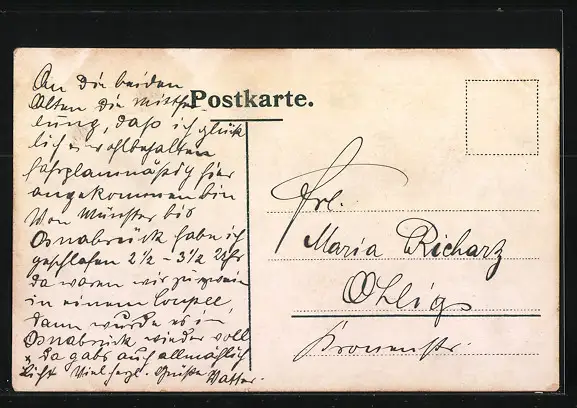 An die beiden
Alten die Mittei-
lung, daß ich glück
lich u wohlbehalten
fahrplanmäßig hier
angekommen bin
Von Münster bis
Osnabrück habe ich
geschlafen 2½ - 3½ Uhr
da waren wir zu zweien
in einem Coupee,
dann wurde es in
Osnabrück wieder voll
u da gabs auch allmählich
Licht Viel herzl. Grüße
Vatter.
Postkarte.
Frl.
Maria Richarz
Ohligs
Kronenstr.